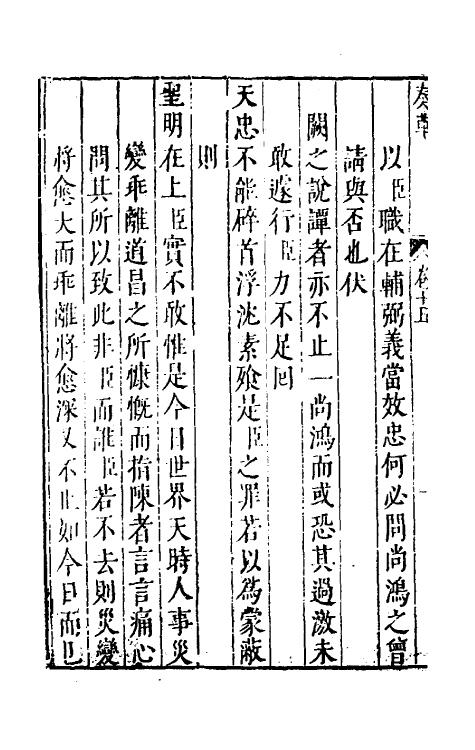 奏草
卷十五
以臣職在輔弼義當效忠何必問尚鴻之曾
請與否也伏
闕之說譚者亦不止一尚鴻而或恐其過激未
敢遽行臣力不足回
天忠不能碎首浮沈素飱是臣之罪若以爲蒙蔽
則
聖明在上臣實不敢惟是今日世界天時人事災
變乖離道昌之所慷慨而指陳者言言痛心
問其所以致此非臣而誰臣若不去則災變
將愈大而乖離將愈深又不止如今日而已